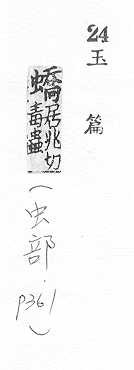 24
玉篇
蟜居兆切毒蟲
(虫部 p361)